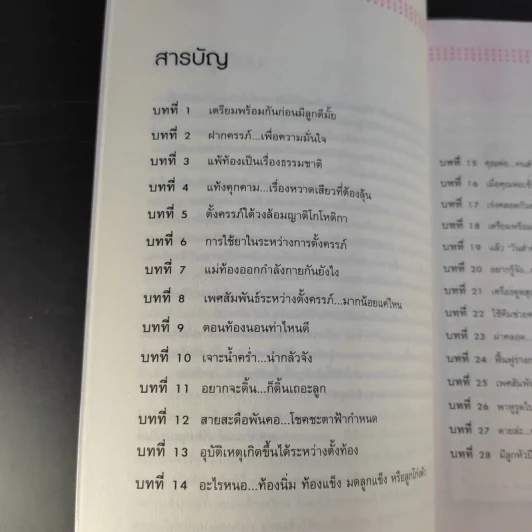 สารบัญ
บทที่ 1 เตรียมพร้อมกันก่อนมีลูกดีมั้ย
บทที่ 2 ฝากครรภ์...เพื่อความมั่นใจ
บทที่ 3 แพ้ท้องเป็นเรื่องธรรมชาติ
บทที่ 4 แท้งคุกคาม...เรื่องหวาดเสียวที่ต้องลุ้น
บทที่ 5 ตั้งครรภ์ใต้วงล้อมญาติโกโหติกา
บทที่ 6 การใช้ยาในระหว่างการตั้งครรภ์
บทที่ 7 แม่ท้องออกกำลังกายกันยังไง
บทที่ 8 เพศสัมพันธ์ระหว่างตั้งครรภ์...มากน้อยแค่ไหน
บทที่ 9 ตอนท้องนอนท่าไหนดี
บทที่ 10 เจาะน้ำคร่ำ...น่ากลัวจัง
บทที่ 11 อยากจะดิ้น...ก็ดิ้นเถอะลูก
บทที่ 12 สายสะดือพันคอ...โชคชะตาฟ้ากำหนด
บทที่ 13 อุบัติเหตุเกิดขึ้นได้ระหว่างตั้งท้อง
บทที่ 14 อะไรหนอ...ท้องนิ่ม ท้องแข็ง มดลูกแข็ง หรือลูกโก่งตัว
บทที่ 15 คุณพ่อ...
บทที่ 16
บทที่ 17
บทที่ 18 เตรียมพร้อม
บทที่ 19 แล้ว
บทที่ 20 อยากรู้จัง...
บทที่ 21
บทที่ 22
บทที่ 23 ผ่าคลอด...
บทที่ 24
บทที่ 25
บทที่ 26
บทที่ 27
บทที่ 28